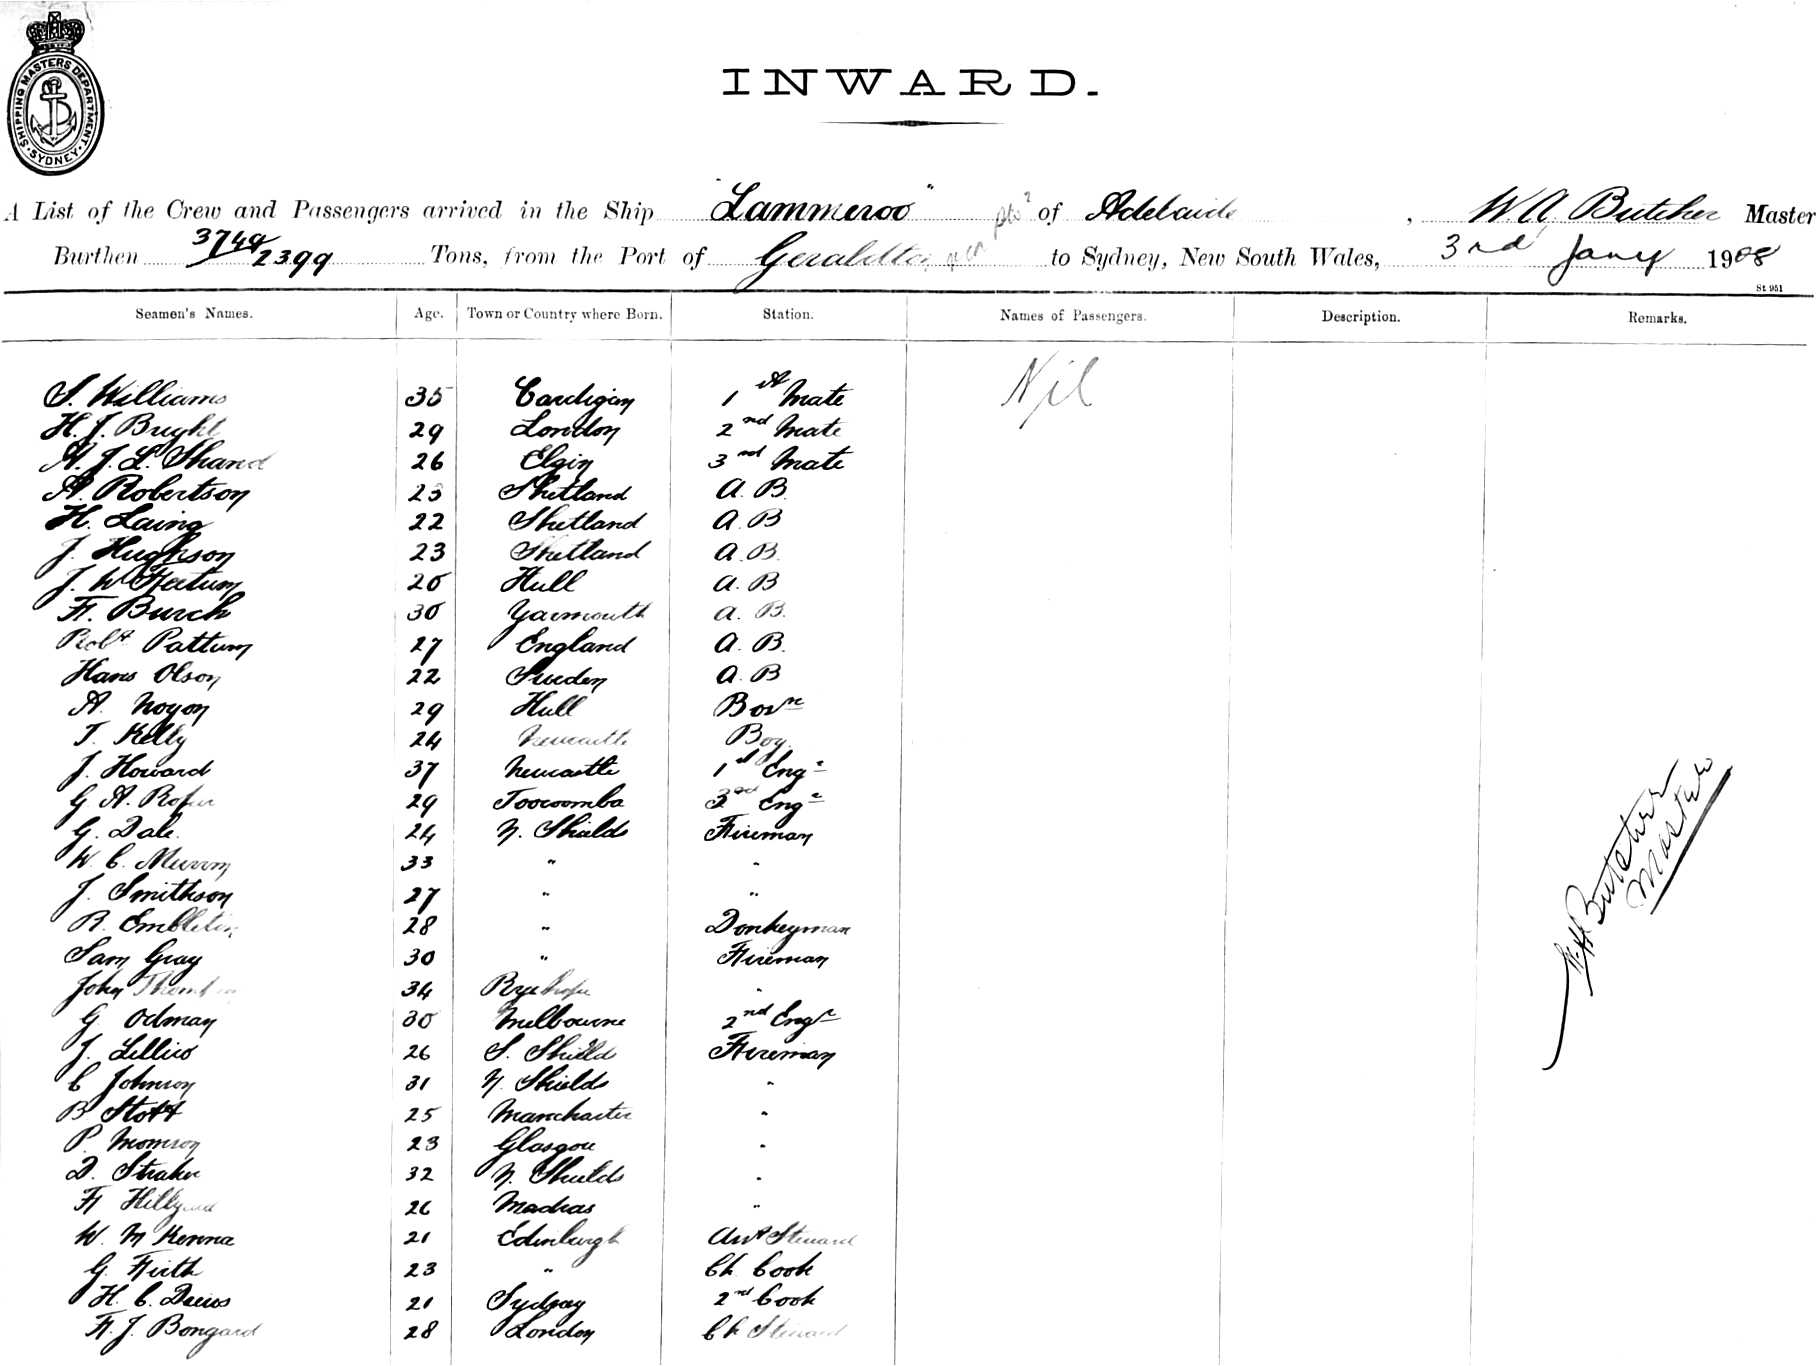 SHIPPING MASTERS DEPARTMENT. SYDNEY.
INWARD.
A List of the Crew and Passengers arrived in the Ship "Lammeroo" of Adelaide, W. A. Butcher Master
Burthen 3749/2399 Tons, from the Port of Geraldton to Sydney, New South Wales, 3rd Jany 1908
St 951
Seamen's Names. Age. Town or Country where Born. Station. Names of Passengers. Description. Remarks.
S. Williams 35 Cardigan 1st Mate Nil
H. J. Bright 29 London 2nd Mate
A. J. L. Shand 26 Elgin 3rd Mate
A. Robertson 23 Shetland A. B.
H. Laing 22 Shetland A. B
J. Hughson 23 Shetland A. B.
J. W 20 Hull A. B
F. Burch 30 Yarmouth A. B.
Robt Pattum 27 England A. B.
Hans Olson 22 Sweden A. B
A. Noyon 29 Hull Bosn
T. Kelly 24 Newcastle Boy
J. Howard 37 Newcastle 1st Engr
G. A. Roper 29 Toowoomba 3rd Engr
G. Dale 24 N. Shields Fireman
W. C. 33 " "
J. Smithson 27 " "
R. Embleton 28 " Donkeyman
Sam Gray 30 " Fireman
John 34 Ryehope "
G Odman 30 Melbourne 2nd Engr
J. Lillico 26 S. Shields Fireman
C Johnson 31 N. Shields "
B Stott 25 Manchester "
P. 23 Glasgow "
D. Straker 32 N. Shields "
F Hillyard 26 Madras "
W. McKenna 21 Edinburgh Asst Steward
G. Firth 23 " Ch. Cook
H. C. 21 Sydney 2nd Cook
F. J. Bongard 28 London Ch Steward
W A Butcher
Master